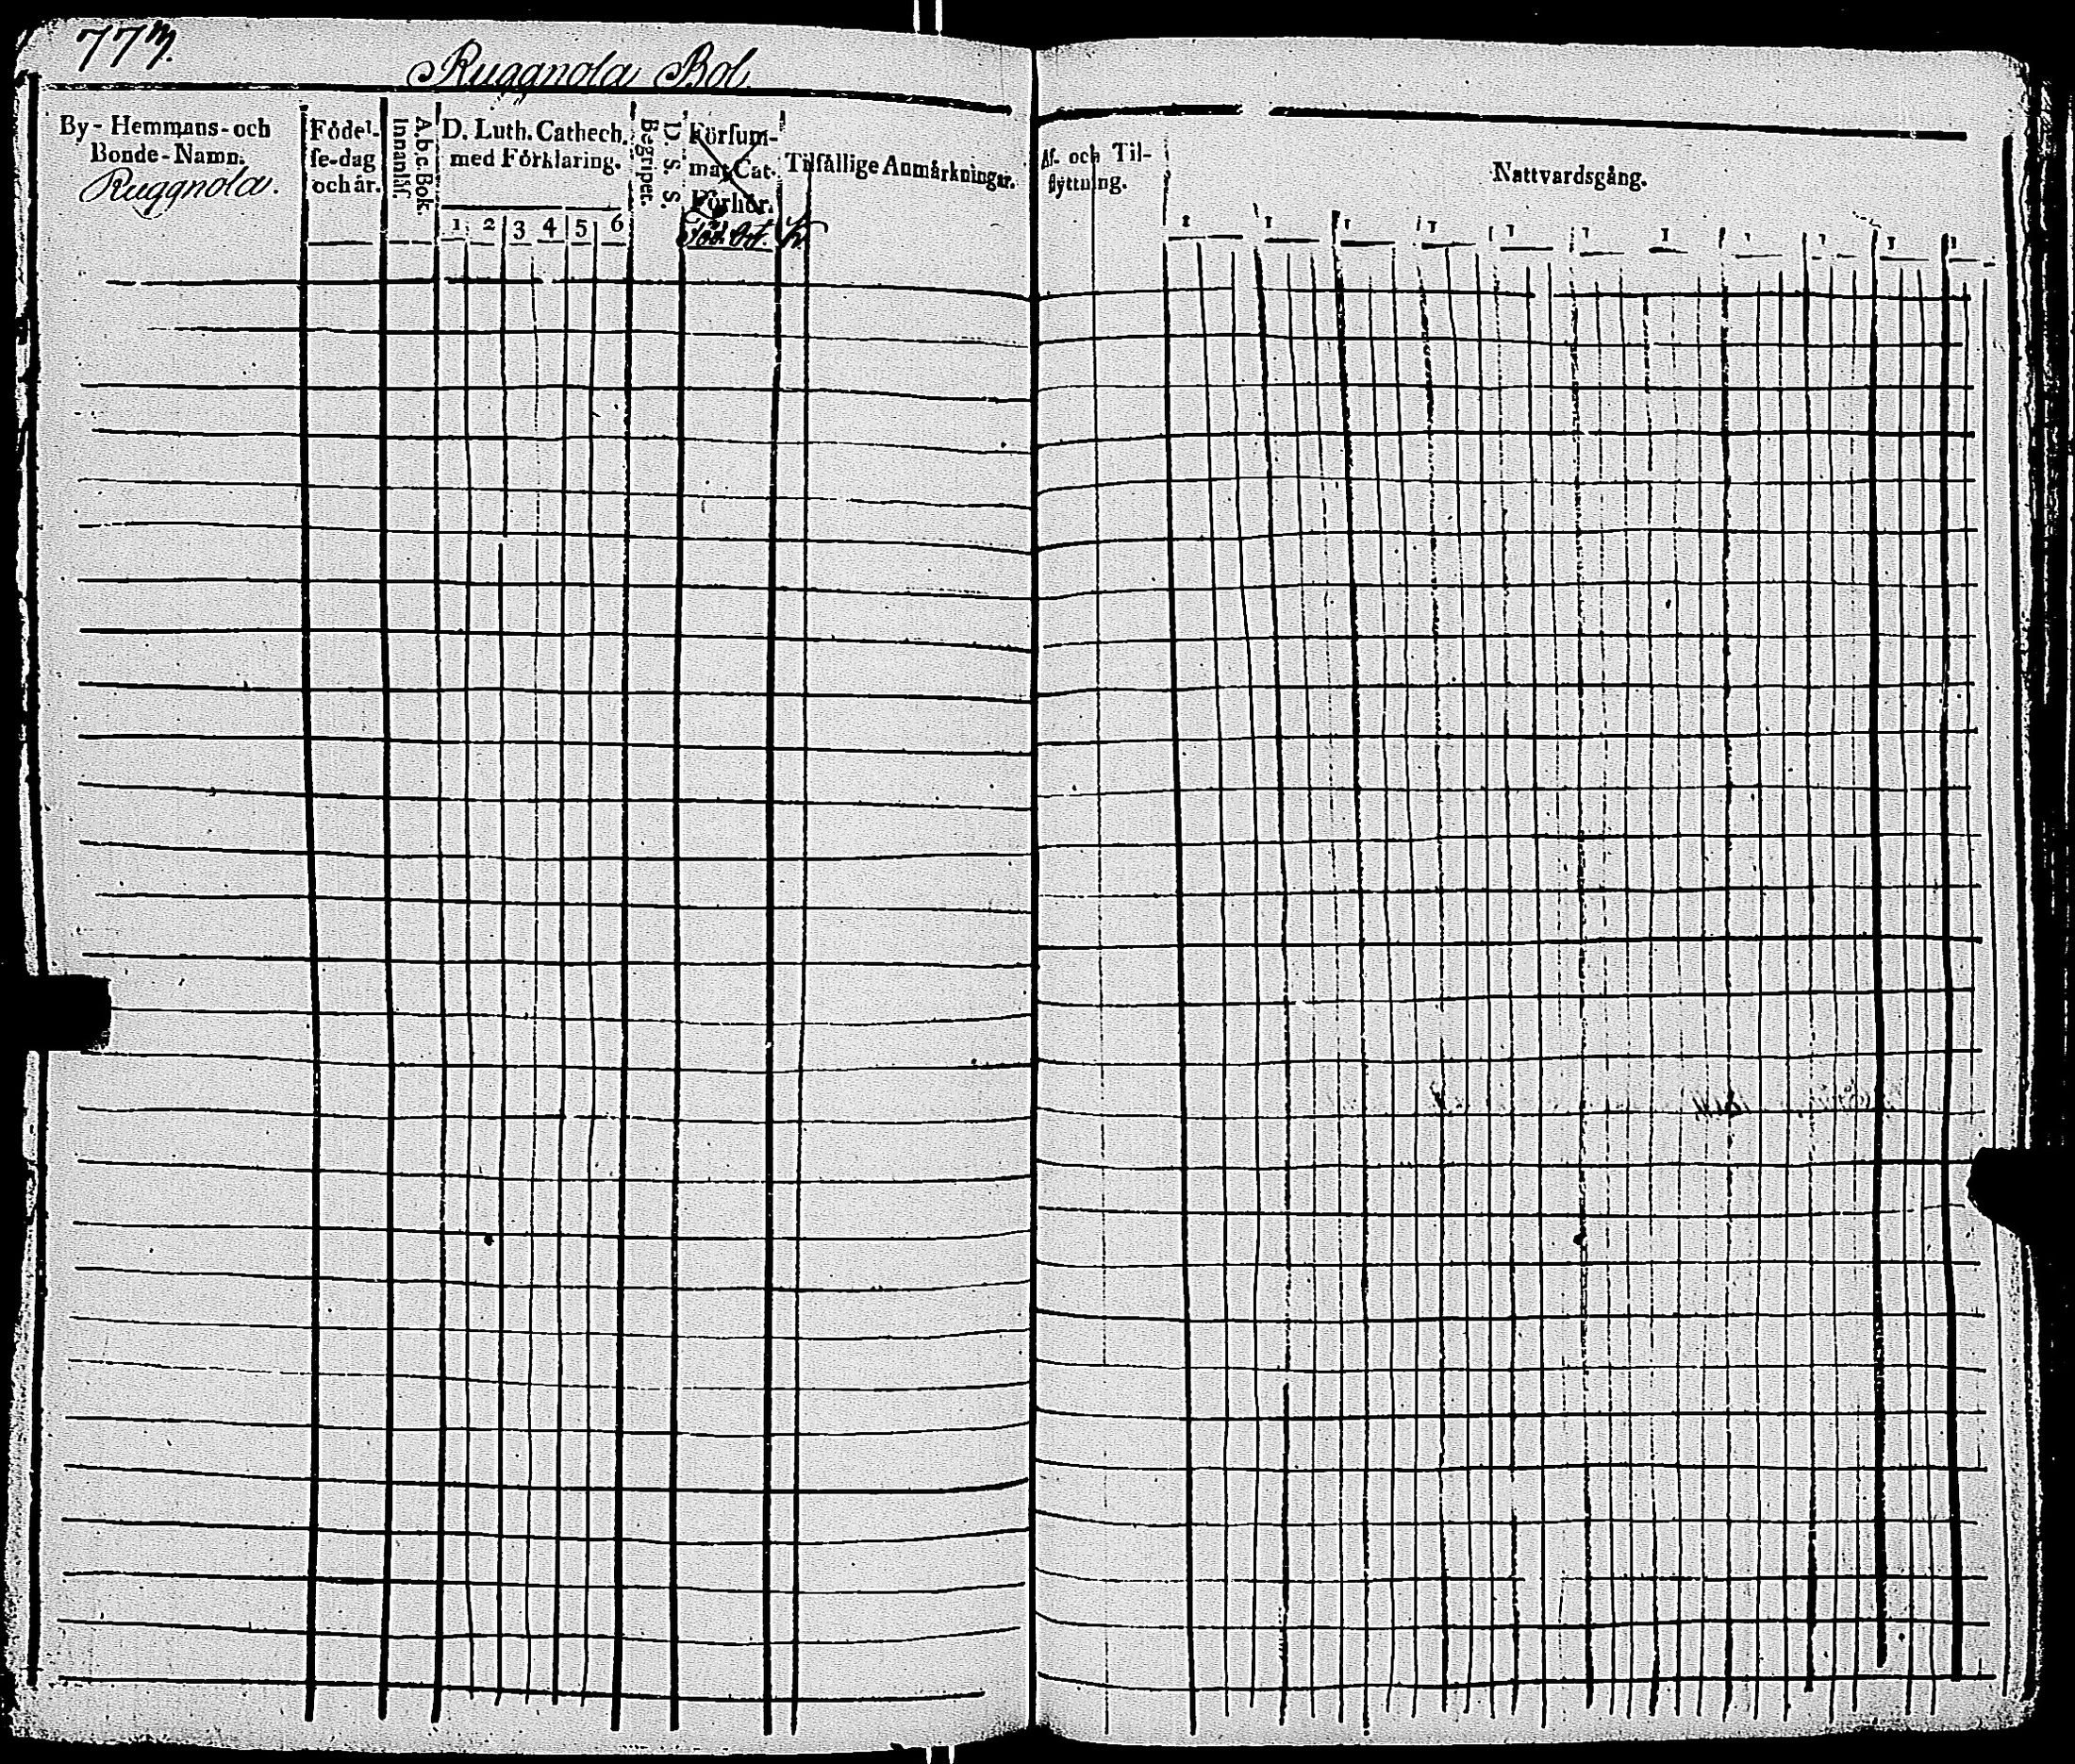 77
Ruggnola Bol
By-Hemmans-och
Bonde-Namn.
Ruggnola.
Fôdel-
se-dag
och år.
A.b.c.Bok.
Innanläs.
D. Luth. Cathech.
med Förklaring.
1 2 3 4 5 6
D. S. S.
Begriper.
Försum-
mat Cat.
Förhör.
Tilfällige Anmärkningar.
Af- och Til-
flyttning.
Nattvardsgång.
1 1 1 1 1 1 1 1 1 1 1